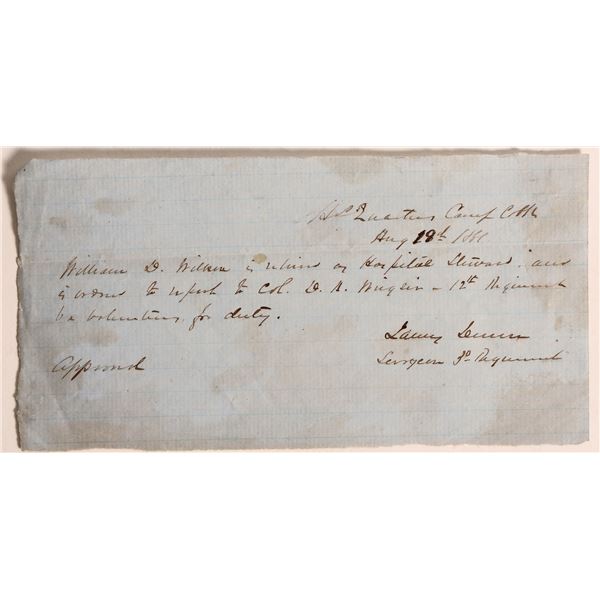 Hd Quarters Camp Cobb
Aug 18th 1861
William D. Wilson is as Hospital Steward and
is orders to report to Col. D. A. 12th Regiment
Va Volunteers for duty.
James
Surgeon 3d Regiment
Approved